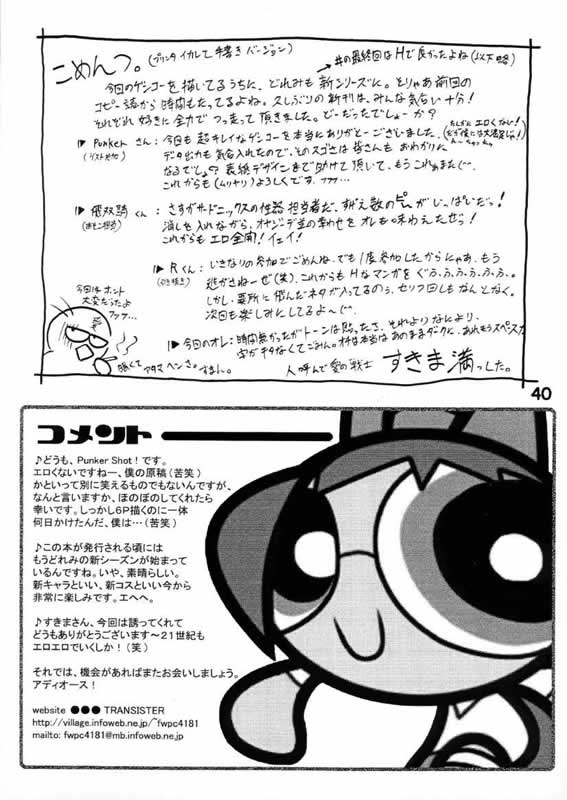 こめんつ。(プリンタイカレて手書きバージョン)
#の最終回はHで良かったよね(以下略)
今回のゲンコーを描いてるうちに、どれみも新シリーズに。とりゃあ前回の
コピー誌から時間もたってるよね。久しぶりの新刊は、みんな気合い十分!
それぞれ好きに全力でつっ走って頂きました。どーだったでしょーか?
▶Punkerさん:今回も超キレイなゲンコーを本当にありがとーございました。
(ゲスト参加)
データ出力も気合入れたので、そのスゴさは皆さんもおわかりに
なるでしょ?表紙デザインまで助けて頂いて、もうこれぁまた
これからも(ムリヤリ)よろしくです。フフフ…
くん:さすがサードニックスの性器担当者だ。
消しを入れながら、オヤジデ並の幸わせをオレも味わえたぜっ!
これからもエロ全開!イェイ!
▶Rくん:いきなりの参加でごめんね。でも1度参加したからにゃあ、もう
逃がさねーぜ(笑)。これからもHなマンガをぐふ、ふ、ふ、ふ、ふ、ふ。
しかし、要所に仕込んだネタが入ってるのう、セリフ回しもなんとなく。
次回も楽しみにしてるよ〜
今回はホント
大変だったよ
フフフ…
▶今回のオレ:時間無かったがトーンは貼ったさ。それよりなにより、
眠くてアタマヘンさ。すまん。
人呼んで愛の戦士 すきま満っした。
40
コメント
♪どうも、Punker Shot!です。
エロくないですねー、僕の原稿(苦笑)
かといって別に笑えるものでもないんですが、
なんと言いますか、ほのぼのしてくれたら
幸いです。しっかし6P描くのに一体
何日かけたんだ、僕は…(苦笑)
♪この本が発行される頃には
もうどれみの新シーズンが始まって
いるんですね。いや、素晴らしい。
新キャラといい、新コスといい今から
非常に楽しみです。エヘヘ。
♪すきまさん、今回は誘ってくれて
どうもありがとうございます〜21世紀も
エロエロでいくしか!(笑)
それでは、機会があればまたお会いしましょう。
アディオース!
website ●●● TRANSISTER
http://village.infoweb.ne.jp/~fwpc4181
mailto: fwpc4181@mb.infoweb.ne.jp